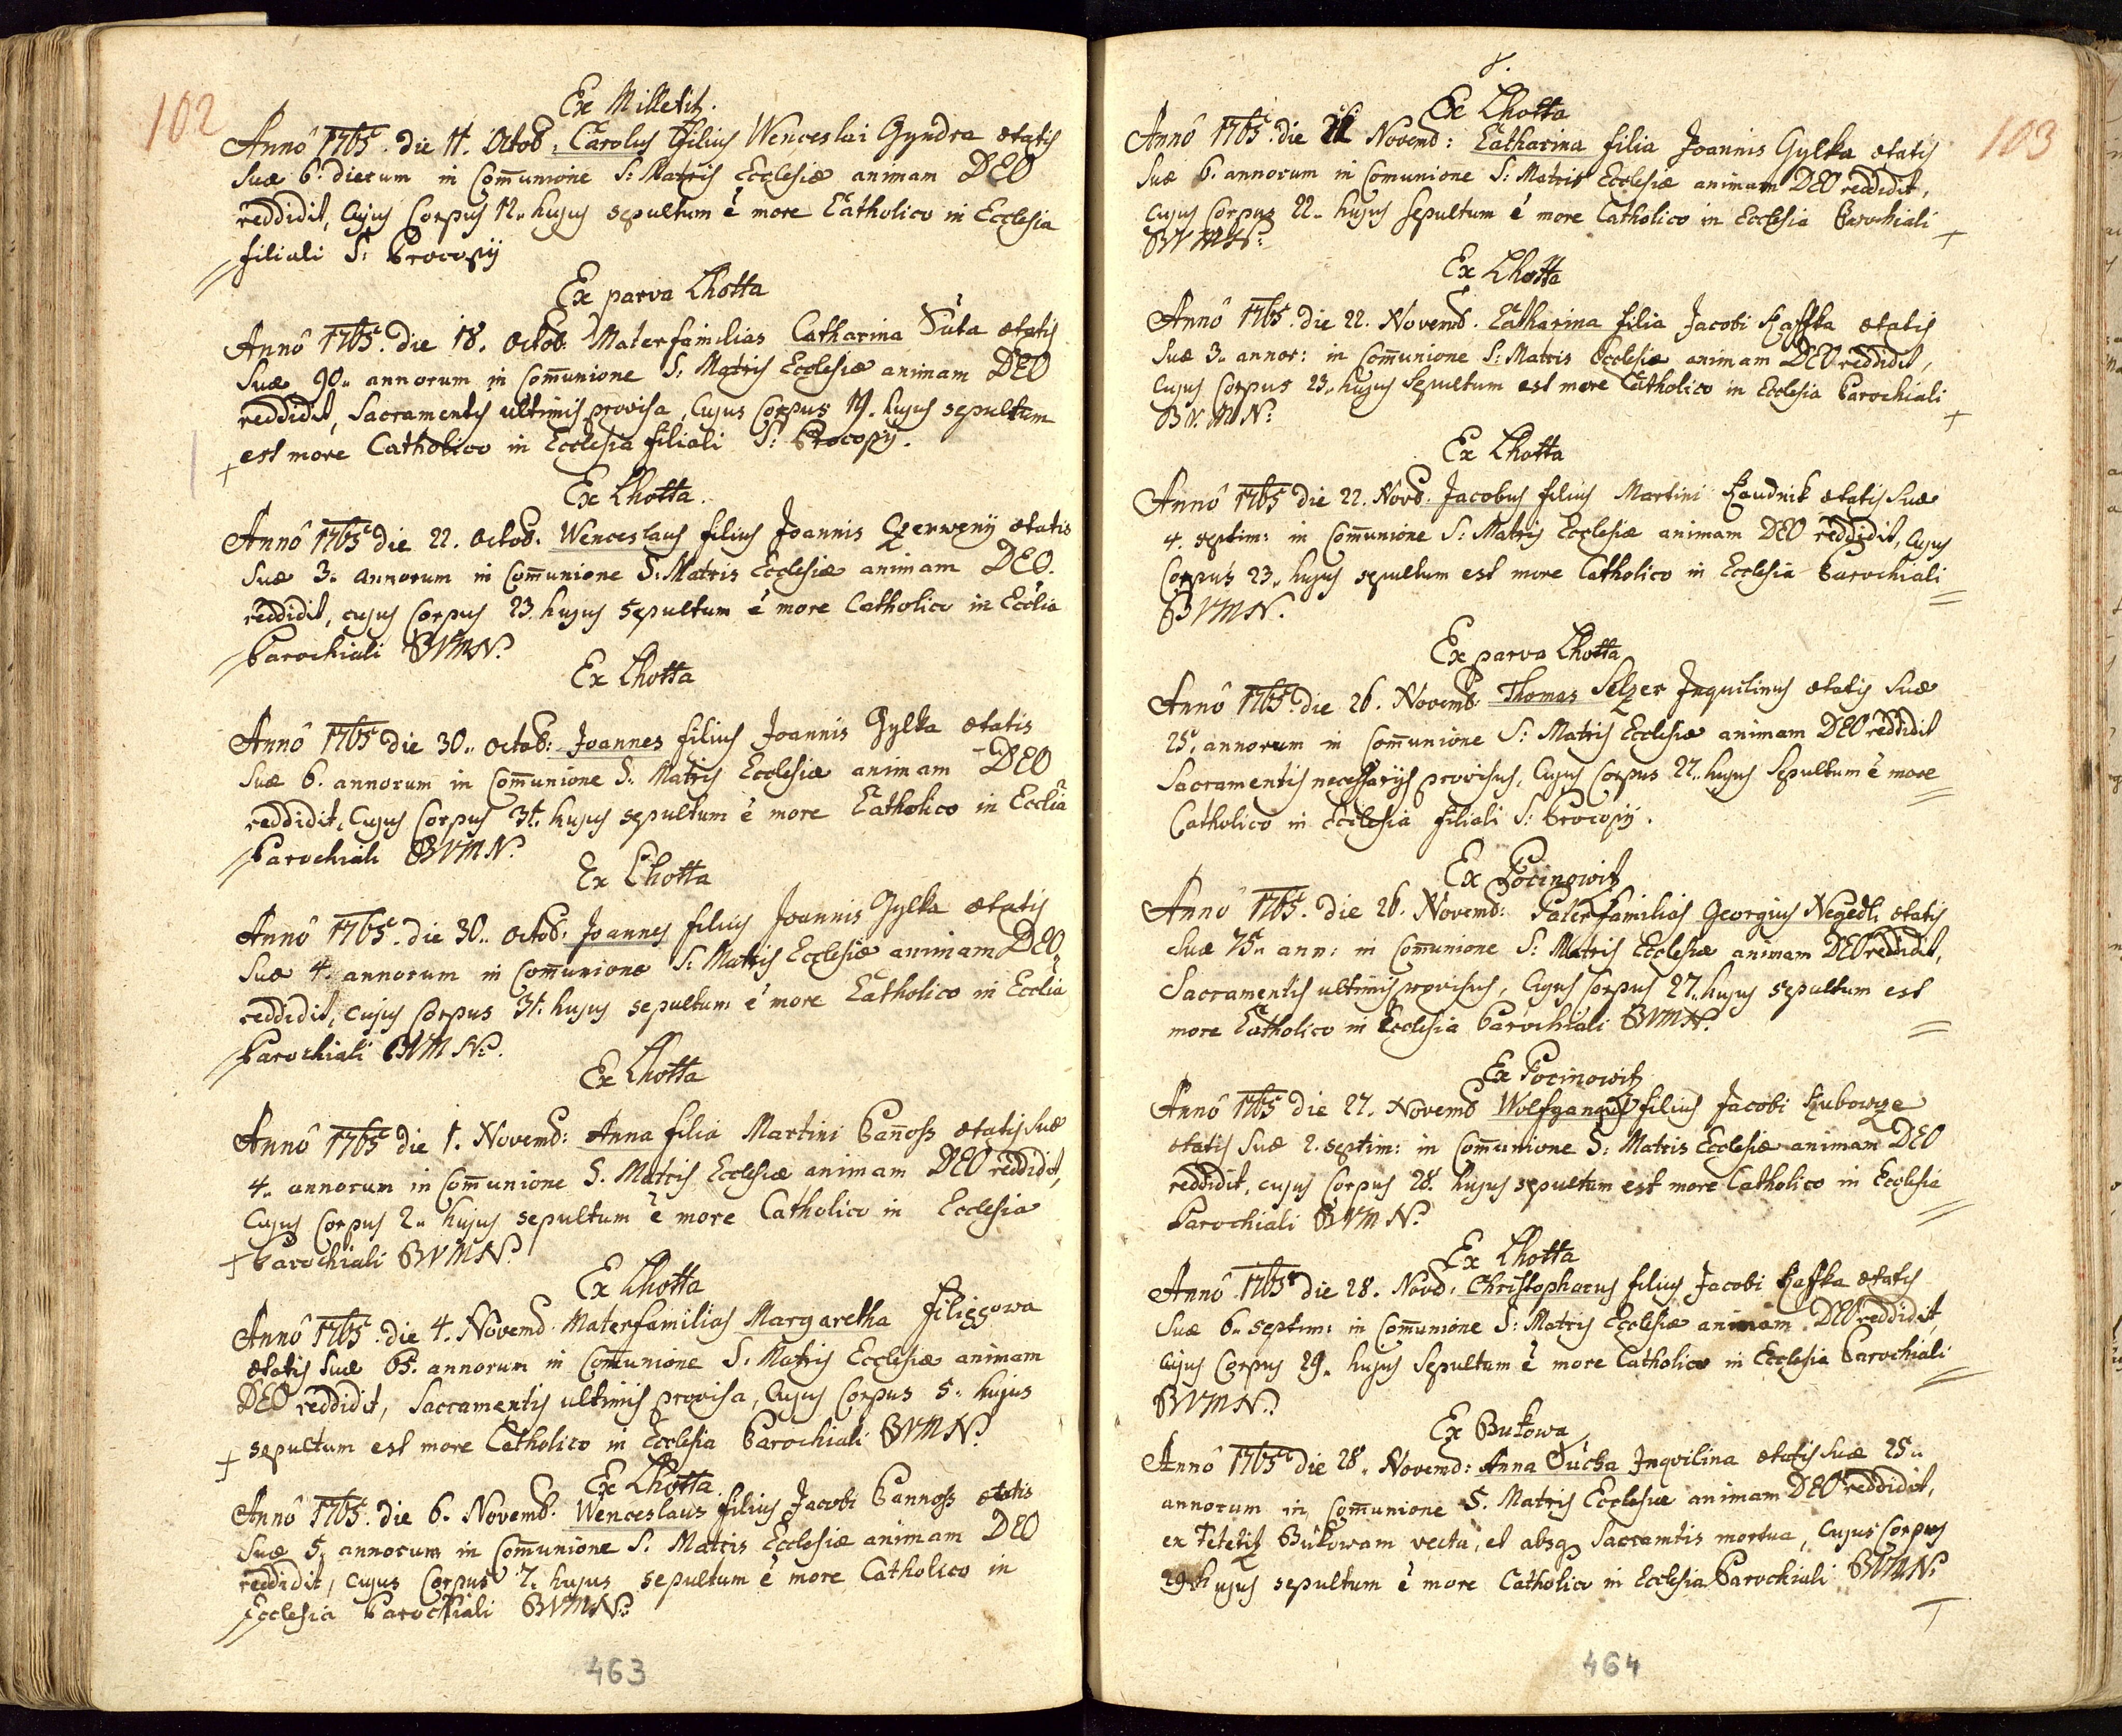 102
Ex Milletitz.
Annô 1765. die 11. Octob. Carolus filius Wenceslai Gyndra ætatis
Suæ 6. dierum in Com̄unione S: Matris Ecclesiæ animam DEO
reddidit, Cujus Corpus 12. hujus sepultum ẽ more Catholico in Ecclesia
filiali S: Procopij
Ex parva Lhotta
Annô 1765. die 18. Octob. Materfamilias Catharina Suta ætatis
Suæ 90. annorum in Com̄unione S: Matris Ecclesiæ animam DEO
reddidit, Sacramentis ultimis provisa, Cujus Corpus 19. hujus sepultum
+ est more Catholico in Ecclesia filiali S: Procopij.
Ex Lhotta.
Annô 1765 die 22. Octob. Wenceslaus filius Joannis Czerweny ætatis
Suæ 3. annorum in Com̄unione S: Matris Ecclesiæ animam DEO.
reddidit, cujus Corpus 23. hujus sepultum ẽ more Catholico in Ecclia
Parochiali BVMN.
Ex Lhotta
Annô 1765 die 30. Octob: Joannes filius Joannis Gylka ætatis
Suæ 6. annorum in Com̄unione S. Matris Ecclesiæ animam DEO
reddidit, Cujus Corpus 31. hujus sepultum ẽ more Catholico in Ecclia
Parochiali BVMN.
Ex Lhotta
Annô 1765. die 30. Octob: Joannes filius Joannis Gylka ætatis
Suæ 4. annorum in Com̄unione S: Matris Ecclesiæ animam DEO
reddidit, cujus Corpus 31. hujus sepultum ẽ more Catholico in Ecclia
Parochiali BVMN.
Ex Lhotta
Annô 1765 die 1. Novemb: Anna filia Martini Pan̄oss ætatis Suæ
4. annorum in Com̄unione S. Matris Ecclesiæ animam DEO reddidit,
Cujus Corpus 2. hujus sepultum ẽ more Catholico in Ecclesia
+ Parochiali BVMN.
Ex Lhotta
Annô 1765. die 4. Novemb. Materfamilias Margaretha
ætatis Suæ 65. annorum in Com̄unione S. Matris Ecclesiæ animam
DEO reddidit, Sacramentis ultimis provisa, Cujus Corpus 5. hujus
+ sepultum est more Catholico in Ecclesia Parochiali BVMN.
Ex Lhotta.
Annô 1765. die 6. Novemb. Wenceslaus filius Jacobi Pannoss ætatis
Suæ 5. annorum in Com̄unione S. Matris Ecclesiæ animam DEO
reddidit, Cujus Corpus 7. hujus sepultum ẽ more Catholico in
Ecclesia Parochiali BVMN.
463
103
Ex Lhotta
Annô 1765. die 21 Novemb: Catharina filia Joannis Gylka ætatis
Suæ 6. annorum in Comunione S: Matris Ecclesiæ animam DEO reddidit,
Cujus Corpus 22. hujus sepultum ẽ more Catholico in Ecclesia Parochiali
BVMN: +
Ex Lhotta
Annô 1765. die 22. Novemb. Catharina filia Jacobi Kaffka ætatis
Suæ 3. annor: in Com̄unione S: Matris Ecclesiæ animam DEO reddidit,
Cujus Corpus 23. hujus Sepultum est more Catholico in Ecclesia Parochiali
BV. MN: +
Ex Lhotta
Annô 1765 die 22. Novb. Jacobus filius Martini Haudnik ætatis Suæ
4. septim: in Com̄unione S: Matris Ecclesiæ animam DEO reddidit, Cujus
Corpus 23. hujus sepultum est more Catholico in Ecclesia Parochiali
BVMN.
Ex parva Lhotta
Annô 1765. die 26. Novemb. Thomas Selzer Inquilinus ætatis Suæ
25. annorum in Com̄unione S: Matris Ecclesiæ animam DEO reddidit
Sacramentis necessarijs provisus, Cujus Corpus 27. hujus Sepultum ẽ more
Catholico in Ecclesia filiali S: Procopij.
Ex Pocinowitz
Annô 1765. die 26. Novemb: Paterfamilias Georgius Negedli ætatis
Suæ 75. ann: in Com̄unione S: Matris Ecclesiæ animam DEO reddidit,
Sacramentis ultimis provisus, Cujus Corpus 27. hujus sepultum est
more Catholico in Ecclesia Parochiali BVMN.
Ex Pocinowitz
Annô 1765 die 27. Novemb Wolfgangus filius Jacobi Kubowze
ætatis Suæ 2. septim: in Com̄unione S: Matris Ecclesiæ animam DEO
reddidit, cujus Corpus 28. hujus sepultum est more Catholico in Ecclesia
Parochiali BVMN.
Ex Lhotta
Annô 1765 die 28. Novb: Christophorus filius Jacobi Kaffka ætatis
Suæ 6. septim: in Com̄unione S: Matris Ecclesiæ animam DEO reddidit,
Cujus Corpus 29. hujus Sepultum ẽ more Catholico in Ecclesia Parochiali
BVMN.
Ex Bukowa
Annô 1765 die 28. Novemb: Anna Ducha Inqvilina ætatis Suæ 25.
annorum in Com̄unione S. Matris Ecclesiæ animam DEO reddidit,
ex Tetetitz Bukowam vecta, et absq Sacramtis mortua, Cujus Corpus
29. hujus sepultum ẽ more Catholico in Ecclesia Parochiali BVMN.
464